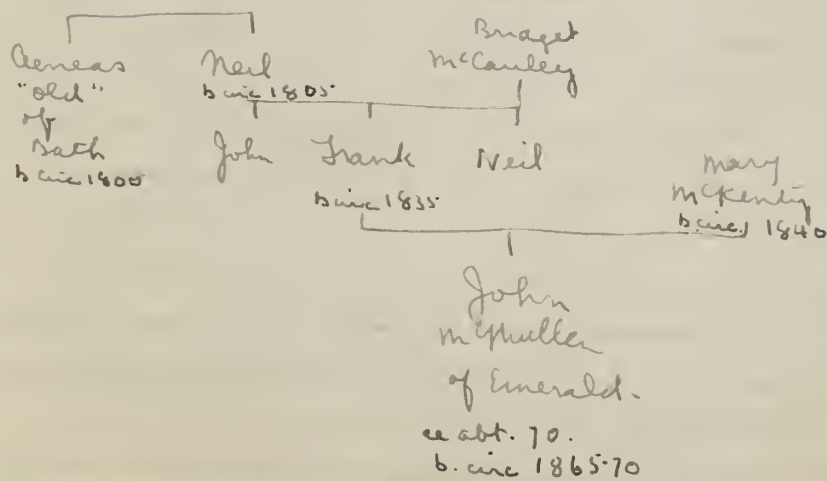 Aeneas
"old"
of
Bath
b circ 1800
Neil
b circ 1805
Bridget
McCauley
John
Frank
b circ 1835
Neil
Mary
McKenty
b. circ. 1840
John
McMullen
of Emerald.
ae abt. 70.
b. circ 1865-70